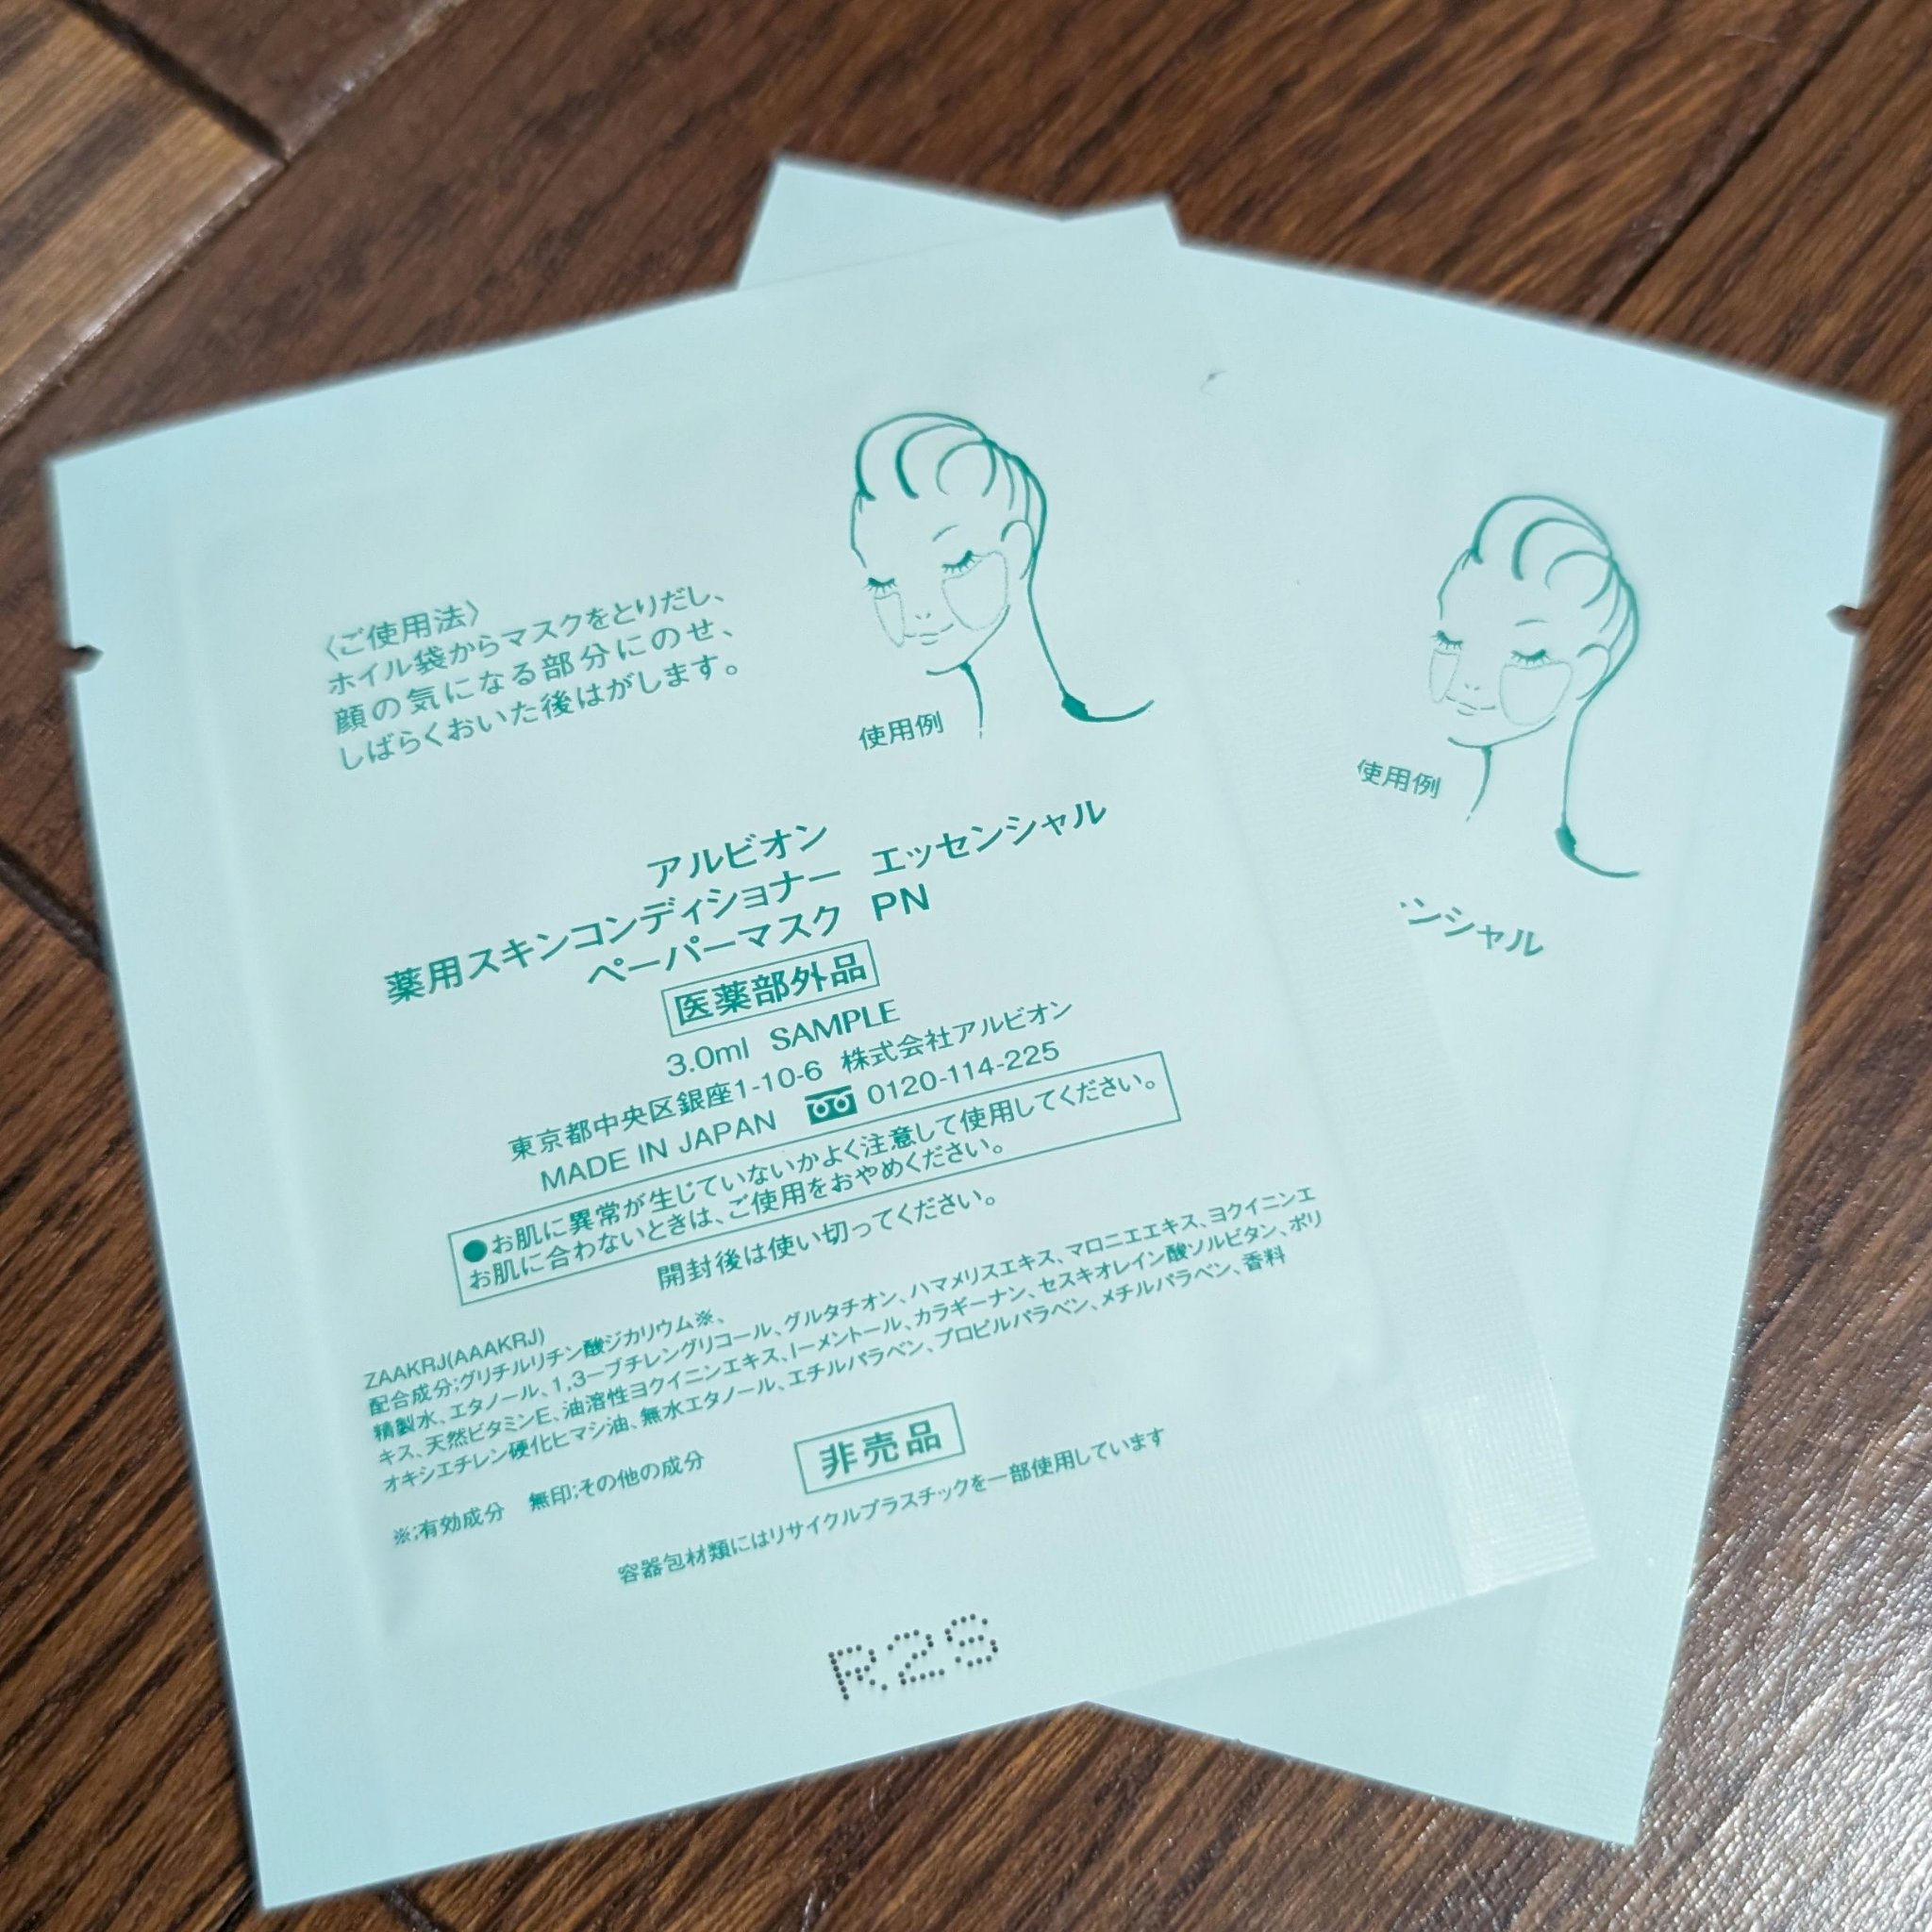 〈ご使用法〉
ホイル袋からマスクをとりだし、
顔の気になる部分にのせ、
しばらくおいた後はがします。
使用例
アルビオン
薬用スキンコンディショナー エッセンシャル
ペーパーマスク PN
医薬部外品
3.0ml SAMPLE
東京都中央区銀座1-10-6 株式会社アルビオン
MADE IN JAPAN 0120-114-225
●お肌に異常が生じていないかよく注意して使用してください。
お肌に合わないときは、ご使用をおやめください。
開封後は使い切ってください。
ZAAKRJ(AAAKRJ)
配合成分;グリチルリチン酸ジカリウム※、
精製水、エタノール、1,3－ブチレングリコール、グルタチオン、ハマメリスエキス、マロニエエキス、ヨクイニンエ
キス、天然ビタミンE、油溶性ヨクイニンエキス、l－メントール、カラギーナン、セスキオレイン酸ソルビタン、ポリ
オキシエチレン硬化ヒマシ油、無水エタノール、エチルパラベン、プロピルパラベン、メチルパラベン、香料
※;有効成分 無印;その他の成分
非売品
容器包材類にはリサイクルプラスチックを一部使用しています
R2S
使用例
ンシャル